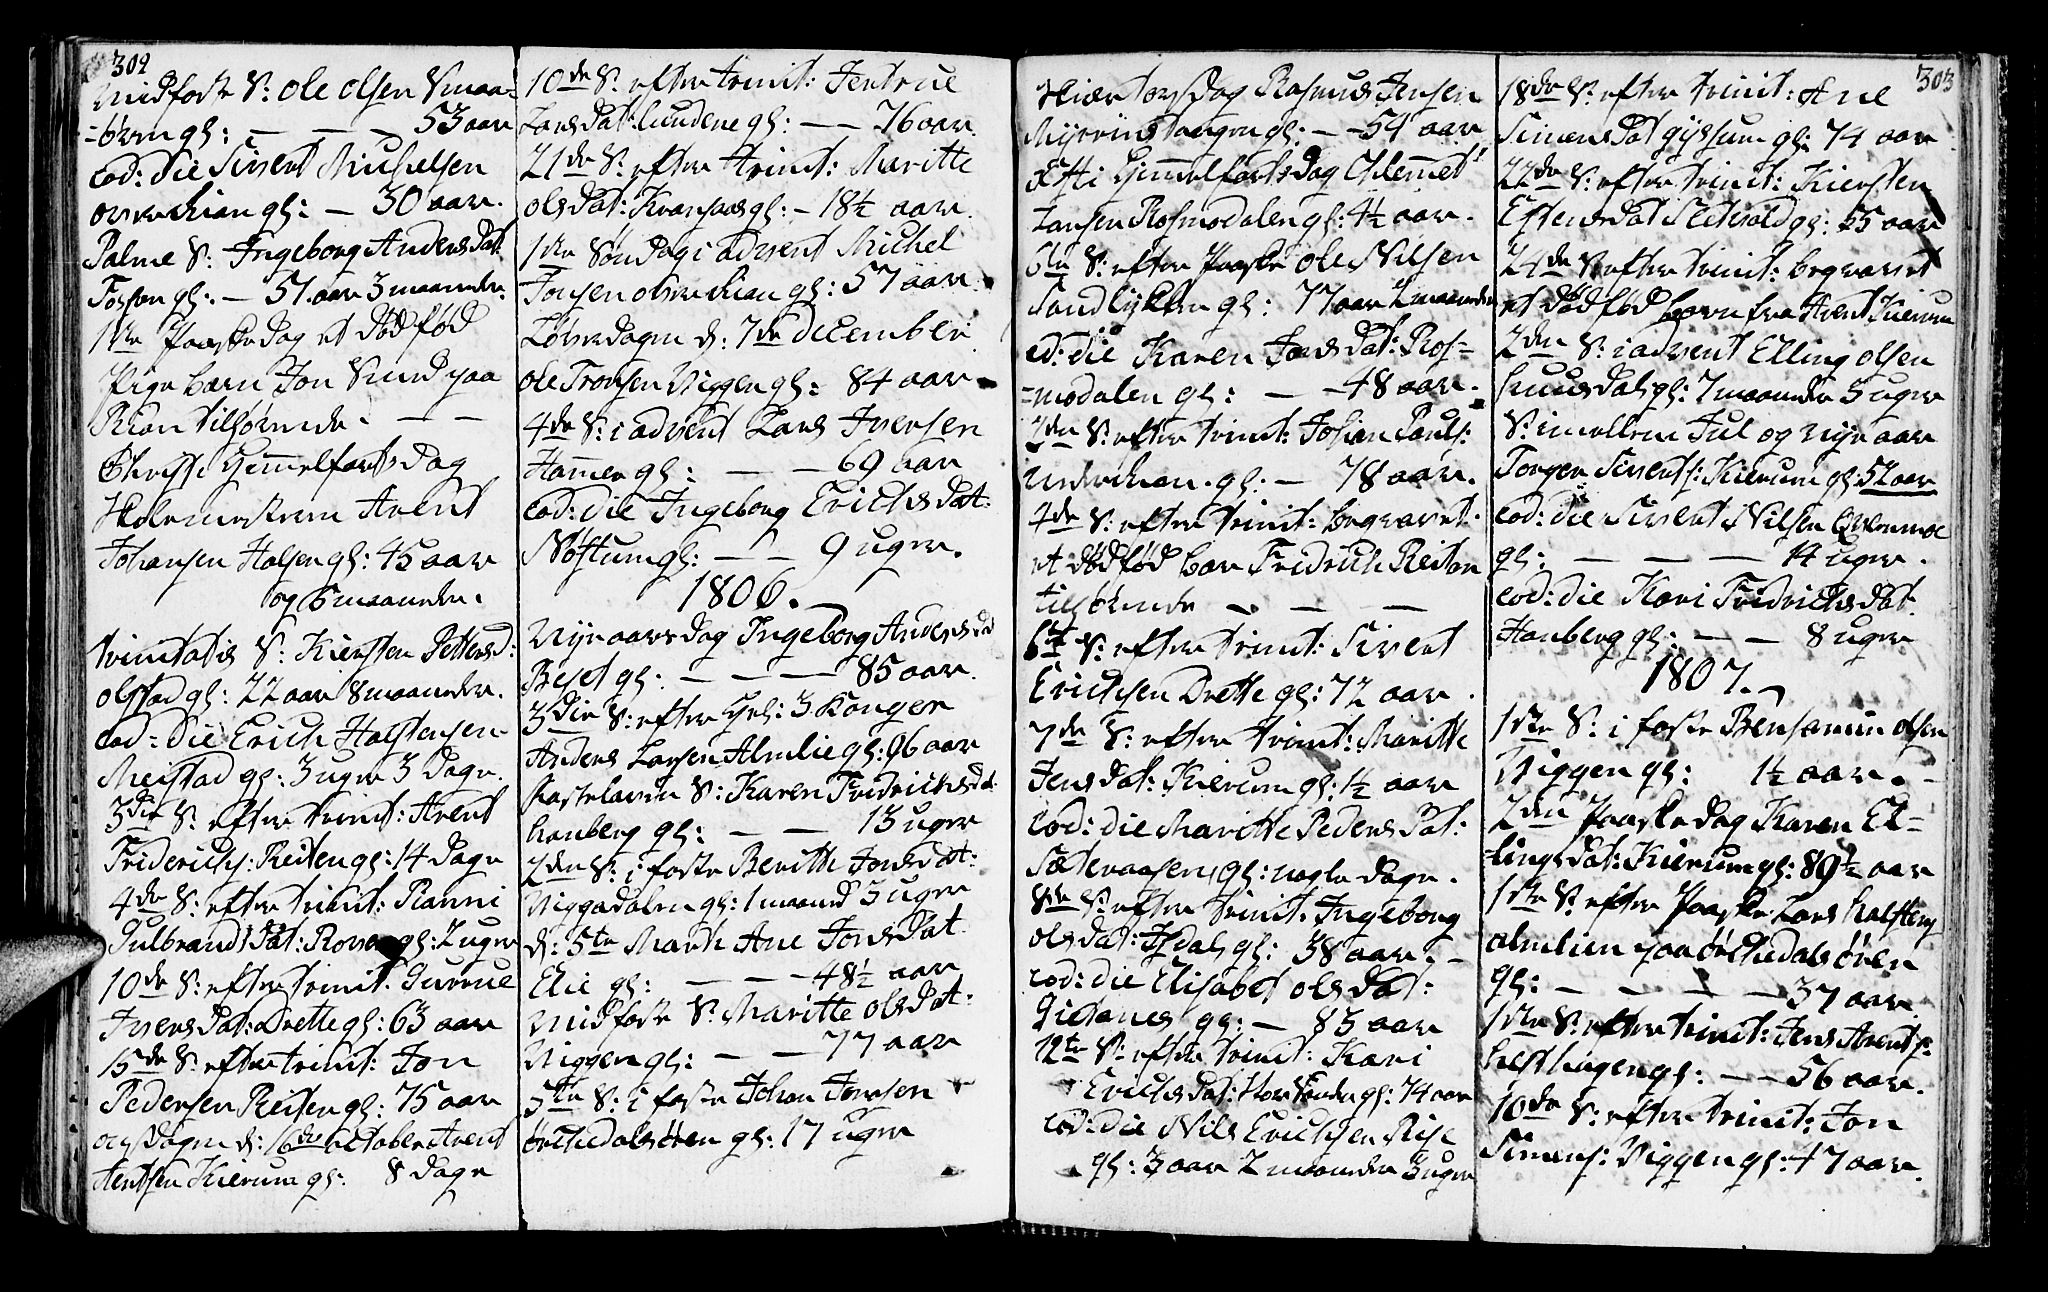 302
Midfaste S: Ole Olsen Smaa=
=børen gl: — — — 53 aar
eod: die Sivert Michelsen
overvikan gl: — 30 aar.
Palme S: Ingeborg Anders Dat:
Forsen gl: — 51 aar 3 maaneder.
1ste Paaske Dag et Dødfød
Pige barn Jon Sund paa
Rian tilhørende. — —
Christi Himmelfarts Dag
Skolemesteren Arent
Johansen Halsen gl: 45 aar
og 6 maaneder.
trinitatis S: Kiersten Petters d:
Olstad gl: 22 aar 8 maaneder.
eod: die Erich Halstensen
Meistad gl: 3 uger 3 Dage.
3die S: efter trinit: Arent
Friderichs: Reiten gl: 14 Dage
4de S: efter trinit: Ranni
Gulbrands Dat: gl: 2 uger
10de S: efter trinit: Gurrue
Ivers Dat: Drette gl: 63 aar
15de S: efter trinit: Jon
Pedersen Reiten gl: 75 aar
Dagen d: 16de october Arent
Kierum gl: 8 Dage
10de S: efter trinit: Jertrue
Lars Dat: Lundene gl: — — 76 aar.
21de S: efter trinit: Maritte
Ols Dat: Kransaas gl: — 18½ aar.
1ste Søndag i advent Michel
Jonsen overvikan gl: 57 aar.
Løverdagen d: 7de December
Ole Tronsen Viggen gl: 84 aar
4de S: i advent Lars Iversen
Hammer gl: — — 69 aar
eod: die Ingeborg Erichs Dat:
Nøstum gl: — — 9 uger.
1806.
Nyeaars Dag Ingeborg Anders Dat
Beset gl: — — — 85 aar.
3die S: efter Hel: 3 Konger
Anders Larsen Almlie gl: 96 aar
fastelavns S: Karen Fridrichs Dat:
hanberg gl: — — 13 uger
2den S: i faste Beritte Jons Dat:
Viggadalen gl: 1 maaned 3 uger
d: 5te Marti Ane Jons Dat
Elie gl: — — 48½ aar
Midfaste S: Maritte Ols Dat:
Viggen gl: — — 77 aar
5te S: i faste Johan Jonsen
Örchedalsören gl: 17 uger
303
Skiærtorsdag Rasmus Jensen
gl: — 54 aar
Xsti Himmelfarts Dag Clemet
Larsen Rosmodalen gl: 4½ aar.
6te S: efter Paaske Ole Nilsen
Sandlykken gl: 77 aar 2 maaneder
eod: die Karen Jons Dat: Ros=
=modalen gl: — — 48 aar.
2den S: efter trinit: Johan Pouls:
Undervikan. gl: — 78 aar.
4de S: efter trinit: begravet
et dødfød barn Fridrich Reiten
tilhørende — — —
6te S: efter trinit: Sivert
Erichsen Drette gl: 72 aar.
7de S: efter trinit: Maritte
Jens Dat: Kierum gl: 1½ aar
eod: die Maritte Peders Dat:
Sæteraasen gl: nogle dage.
8de S: efter trinit: Ingeborg
Ols Dat: gl: 38 aar. —
eod: die Elisabet Ols Dat:
gl: — 83 aar
12te S: efter trinit: Kari
Erichs Dat: gl: 74 aar
eod: die Nils Erichsen Rise
gl: 3 aar 2 maaneder 3 uger
18de S: efter trinit: Ane
Simens Dat Gjssum gl: 74 aar
22de S: efter trinit: Kiersten
Estens Dat gl: 55 aar
24de S: efter trinit: begravet
et dødfød barn fra Arent Kierum
2den S: i advent Elling Olsen
Huusdal gl: 7 maaneder 3 uger
S: imellem Jul og nye aar
Torger Siverts: Kierum gl: 52 aar
eod: die Sivert Nilsen Evlemoe
gl: — — — 14 uger.
eod: die Kari Fridrichs Dat:
Hanberg gl: — — 8 uger
1807.
1ste S: i faste Benjamin Olsen
Viggen gl: 1½ aar. —
2den Paaske Dag Karen El=
=lings Dat: Kierum gl: 89½ aar
1ste S: efter Paaske Lars Halstens:
Almlien paa Örchedalsören
gl: — — — — 37 aar.
1ste S: efter trinit: Jens Arents:
hesthagen gl: — — 56 aar.
10de S: efter trinit: Jon
Simens: Viggen gl: 47 aar.